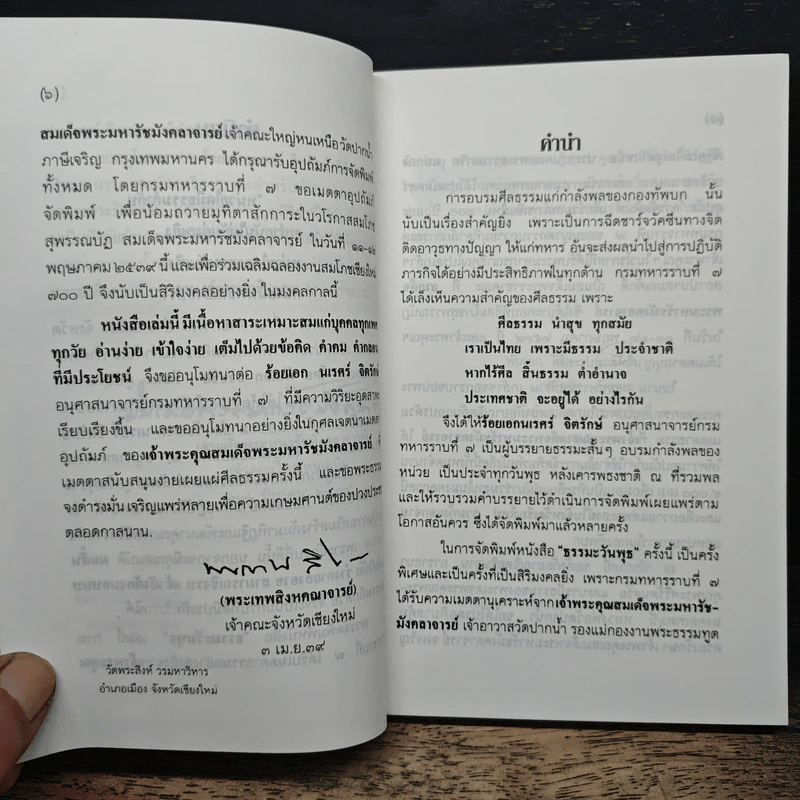 (๖)
สมเด็จพระมหารัชมังคลาจารย์ เจ้าคณะใหญ่หนเหนือ วัดปากน้ำ
ภาษีเจริญ กรุงเทพมหานคร ได้กรุณารับอุปถัมภ์การจัดพิมพ์
ทั้งหมด โดยกรมทหารราบที่ ๗ ขอเมตตาอุปถัมภ์
จัดพิมพ์ เพื่อน้อมถวายมุทิตาสักการะในวโรกาสสมโภช
สุพรรณบัฏ สมเด็จพระมหารัชมังคลาจารย์ ในวันที่ ๑๑-๑๒
พฤษภาคม ๒๕๓๙ นี้ และเพื่อร่วมเฉลิมฉลองงานสมโภชเชียงใหม่
๗๐๐ ปี จึงนับเป็นสิริมงคลอย่างยิ่ง ในมงคลกาลนี้
หนังสือเล่มนี้ มีเนื้อหาสาระเหมาะสมแก่บุคคลทุกเพศ
ทุกวัย อ่านง่าย เข้าใจง่าย เต็มไปด้วยข้อคิด คำคม คำกลอน
ที่มีประโยชน์ จึงขออนุโมทนาต่อ ร้อยเอก นเรศร์ จิตรักษ์
อนุศาสนาจารย์กรมทหารราบที่ ๗ ที่มีความวิริยะอุตสาหะ
เรียบเรียงขึ้น และขออนุโมทนาอย่างยิ่งในกุศลเจตนาเมตตา
อุปถัมภ์ ของเจ้าพระคุณสมเด็จพระมหารัชมังคลาจารย์
เมตตาสนับสนุนงานเผยแผ่ศีลธรรมครั้งนี้ และขอพระธรรม
จงดำรงมั่น เจริญแพร่หลายเพื่อความเกษมศานต์ของปวงประชา
ตลอดกาลนาน.
(พระเทพสิงหคณาจารย์)
เจ้าคณะจังหวัดเชียงใหม่
๓ เม.ย.๓๙
วัดพระสิงห์ วรมหาวิหาร
อำเภอเมือง จังหวัดเชียงใหม่
คำนำ
การอบรมศีลธรรมแก่กำลังพลของกองทัพบก นั้น
นับเป็นเรื่องสำคัญยิ่ง เพราะเป็นการฉีดชาร์จวัคซีนทางจิต
ติดอาวุธทางปัญญา ให้แก่ทหาร อันจะส่งผลนำไปสู่การปฏิบัติ
ภารกิจได้อย่างมีประสิทธิภาพในทุกด้าน กรมทหารราบที่ ๗
ได้เล็งเห็นความสำคัญของศีลธรรม เพราะ
ศีลธรรม นำสุข ทุกสมัย
เราเป็นไทย เพราะมีธรรม ประจำชาติ
หากไร้ศีล สิ้นธรรม ต่ำอำนาจ
ประเทศชาติ จะอยู่ได้ อย่างไรกัน
จึงได้ให้ร้อยเอกนเรศร์ จิตรักษ์ อนุศาสนาจารย์กรม
ทหารราบที่ ๗ เป็นผู้บรรยายธรรมะสั้นๆ อบรมกำลังพลของ
หน่วย เป็นประจำทุกวันพุธ หลังเคารพธงชาติ ณ ที่รวมพล
และให้รวบรวมคำบรรยายไว้ดำเนินการจัดพิมพ์เผยแพร่ตาม
โอกาสอันควร ซึ่งได้จัดพิมพ์มาแล้วหลายครั้ง
ในการจัดพิมพ์หนังสือ "ธรรมะวันพุธ" ครั้งนี้ เป็นครั้ง
พิเศษและเป็นครั้งที่เป็นสิริมงคลยิ่ง เพราะกรมทหารราบที่ ๗
ได้รับความเมตตานุเคราะห์จากเจ้าพระคุณสมเด็จพระมหารัช-
มังคลาจารย์ เจ้าอาวาสวัดปากน้ำ รองแม่กองงานพระธรรมทูต